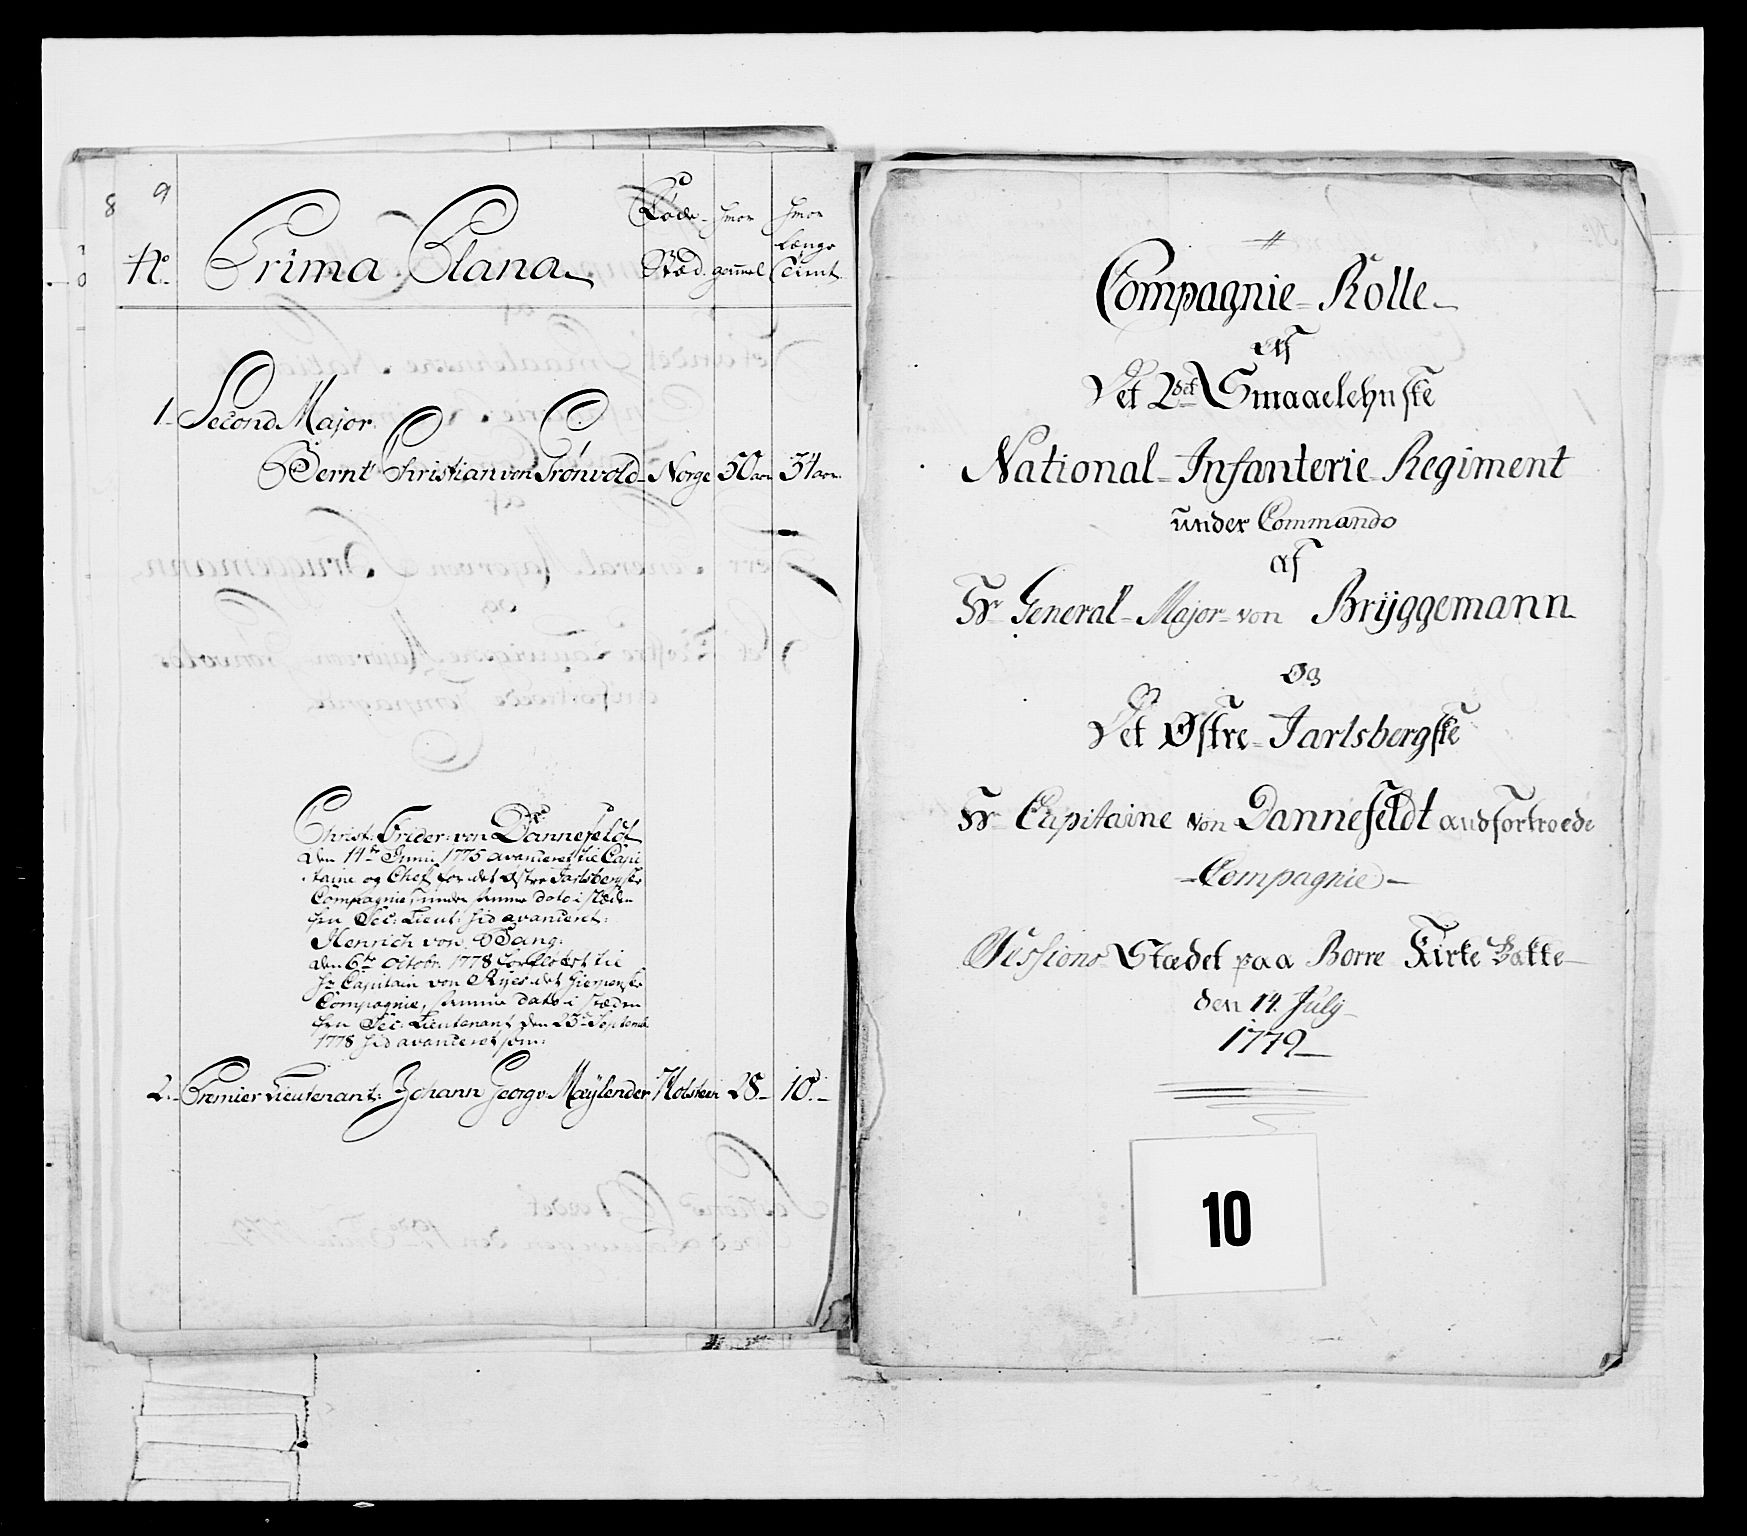 8 9
No Prima Plana
Føde-
Stæd
hvor
gammel
hvor
længe
tient
1. Second Major
Bernt Christian von Trönvold Norge 50 aar 34 aar
Christ: Frider: von Dannefeldt
den 14de Junii 1775 avanceret til Capi
taine og Chef for det Østre Jarlsbergske
Compagnie, under samme dato i stæden
hen Sec: Lieut: hid avanceret:
Henrich von Bang:
den 6te Octobr. 1778 forflottet til
Hr Capitain von Ryes det
Compagnie, samme dato i stæden
hen Sec: Lieutenant den 23de Septembr
1778 hid avanceret som:
2. Premier Lieutenant: Johann Georg v. Mæylender Holsteen 28 10
Compagnie-Rolle
Af
Det 2det Smaaelehnske
National-Infanterie Regiment
under Commando
af
Hr General-Major von Brÿggemann
Og
Det Østre-Jarlsbergske
Hr Capitaine von Dannefeldt andfortroede
Compagnie
Sessions Stædet paa Borre Kirke Bakke
den 14. July
1779
10